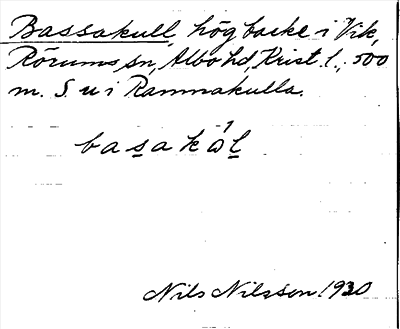 Bassakull, hög backe i Vik,
Rörums sn, Albo hd, Krist. l., 500
m. S u i Rammakulla.
basakål
Nils Nilsson 1930